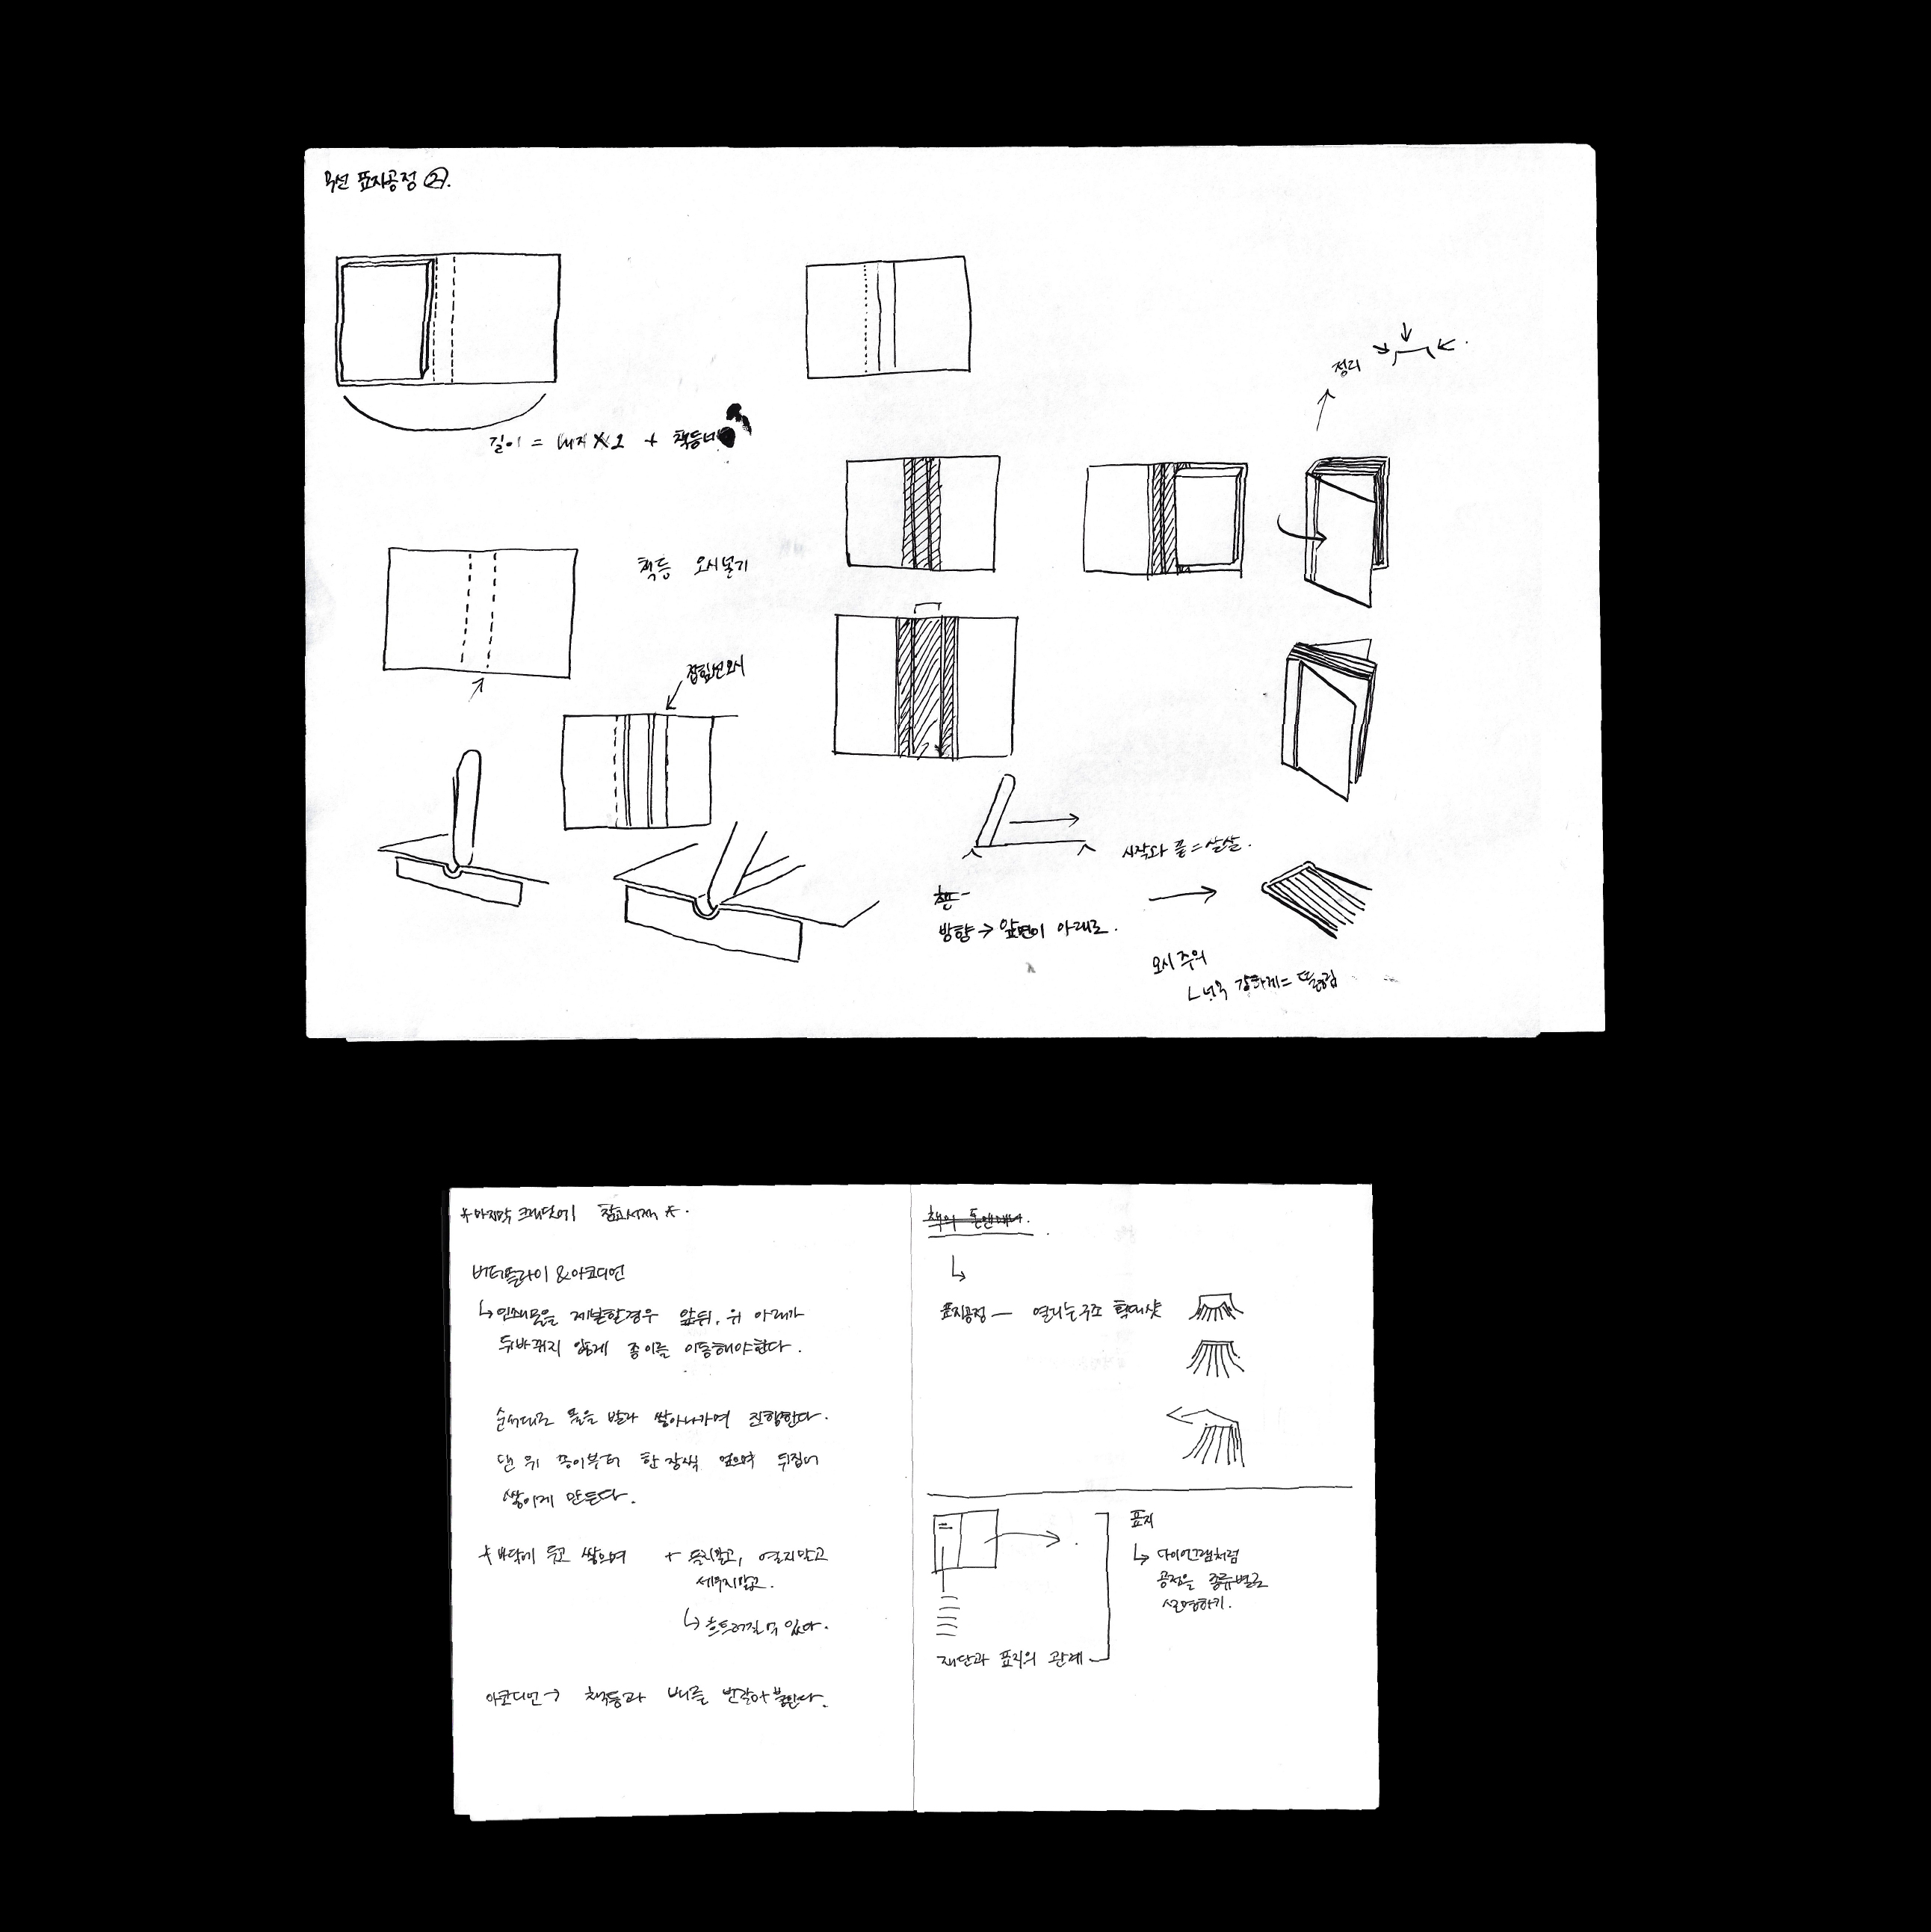 무선 표지공정 ②.
정리
길이 = 내지 X 2 + 책등
책등 오시넣기
접힘선오시
시작과 끝 = 살살.
방향 → 앞면이 아래로.
오시 주의
너무 강하게 = 뚫림
*마지막 크레딧에 참고서재 *.
버터플라이 & 아코디언
↳ 인쇄물을 제본할경우 앞뒤, 위 아래가
뒤바뀌지 않게 종이를 이동해야한다.
순서대로 풀을 발라 쌓아나가며 진행한다.
맨 위 종이부터 한 장씩 엎으며 뒤집어
쌓이게 만든다.
* 바닥에 두고 쌓으며 + 들지말고, 열지말고
세우지말고.
↳ 흐트러질 수 있다.
아코디언 → 책등과 배를 번갈아 붙인다.
책의
↳
표지공정 — 열리는구조 확대샷
표지
↳ 다이어그램처럼
공정을 종류별로
설명하기.
재단과 표지의 관계